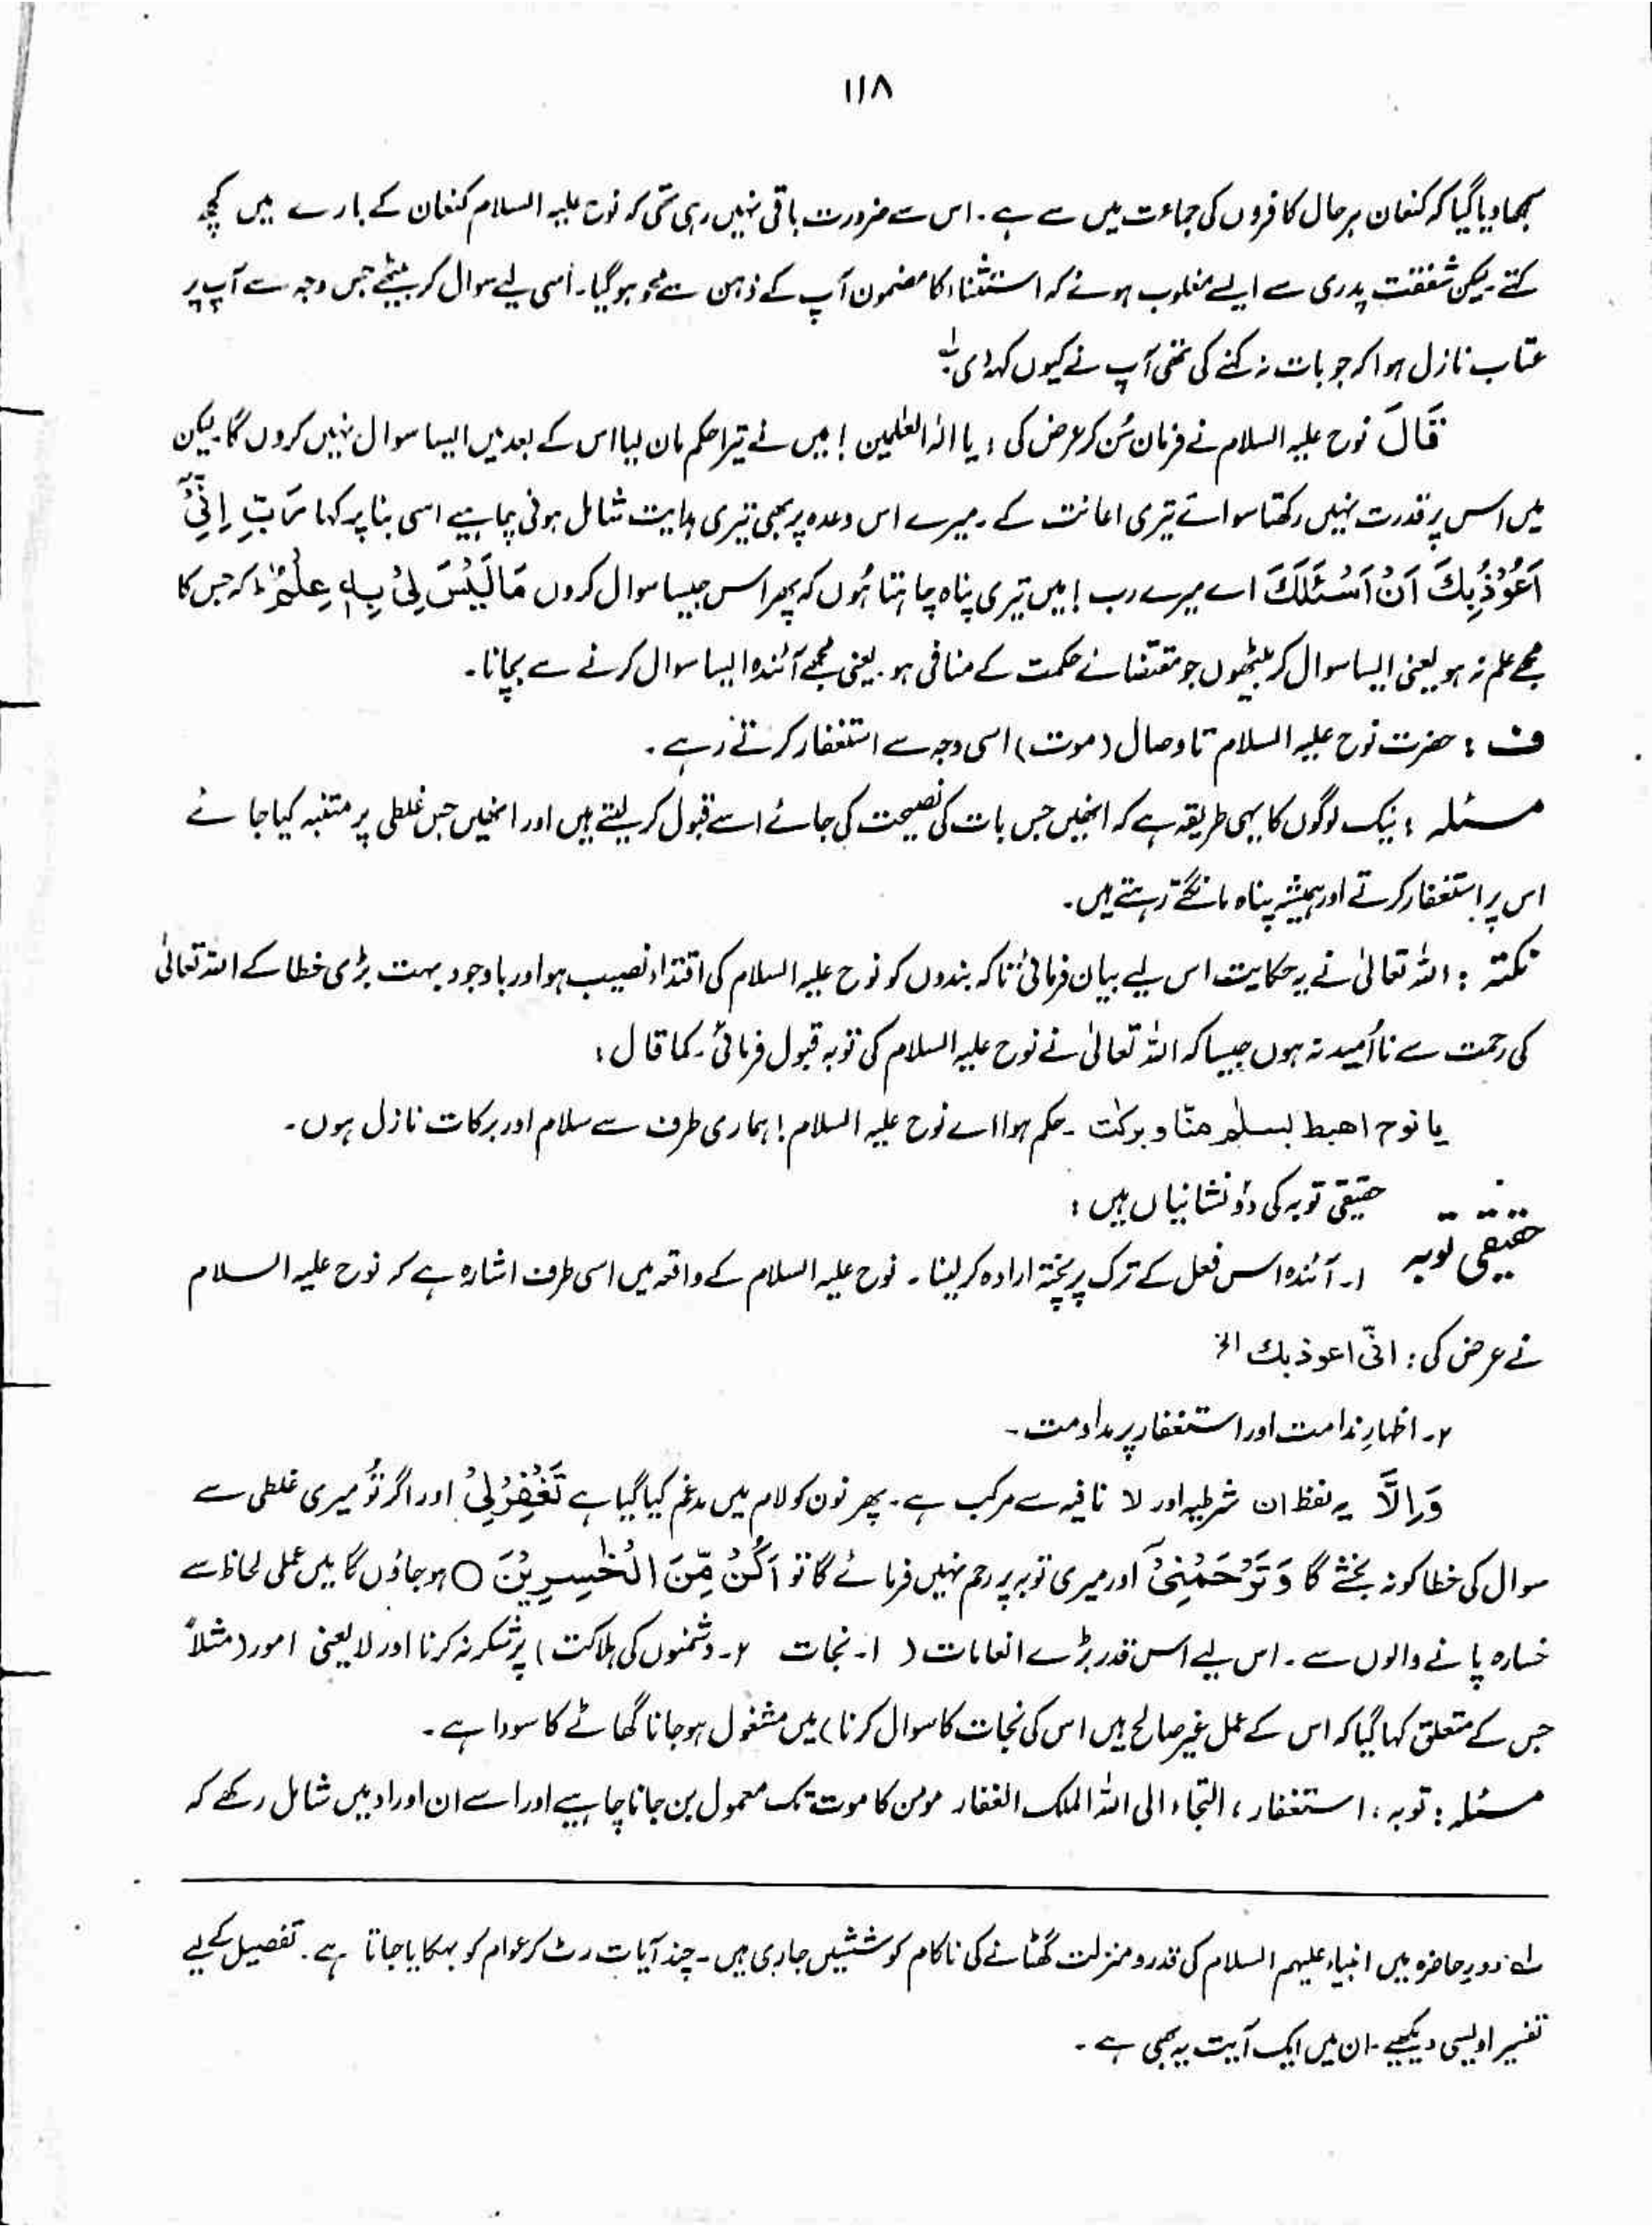 ۱۱۸
سمجھا دیا گیا کہ کنعان بہرحال کافروں کی جماعت میں سے ہے۔ اس سے ضرورت باقی نہیں رہی تھی کہ نوح علیہ السلام کنعان کے بارے میں کچھ
کہتے لیکن شفقت پدری سے ایسے مغلوب ہوئے کہ استثناء کا مضمون آپ کے ذہن سے محو ہو گیا۔ اسی لیے سوال کر بیٹھے جس وجہ سے آپ پر
عتاب نازل ہوا کہ جو بات نہ کہنے کی تھی آپ نے کیوں کہہ دی
قَالَ نوح علیہ السلام نے فرمان سُن کر عرض کی : یا الٰہ العٰلمین ! میں نے تیرا حکم مان لیا اس کے بعد میں ایسا سوال نہیں کروں گا۔ لیکن
میں اس پر قدرت نہیں رکھتا سوائے تیری اعانت کے۔ میرے اس وعدہ پر بھی تیری ہدایت شامل ہونی چاہیے اسی بنا پر کہا رَبِّ اِنِّیْٓ
اَعُوْذُبِكَ اَنْ اَسْئَلَكَ اے میرے رب ! میں تیری پناہ چاہتا ہُوں کہ پھر اس جیسا سوال کروں مَا لَيْسَ لِیْ بِهٖ عِلْمٌ ؕ کہ جس کا
مجھے علم نہ ہو یعنی ایسا سوال کر بیٹھوں جو مقتضائے حکمت کے منافی ہو۔ یعنی مجھے آئندہ ایسا سوال کرنے سے بچانا۔
ف : حضرت نوح علیہ السلام تا وصال (موت) اسی وجہ سے استغفار کرتے رہے۔
مسئلہ : نیک لوگوں کا یہی طریقہ ہے کہ انھیں جس بات کی نصیحت کی جائے اسے قبول کر لیتے ہیں اور انھیں جس غلطی پر متنبہ کیا جائے
اس پر استغفار کرتے اور ہمیشہ پناہ مانگتے رہتے ہیں۔
نکتہ : اللہ تعالیٰ نے یہ حکایت اس لیے بیان فرمائی تاکہ بندوں کو نوح علیہ السلام کی اقتداء نصیب ہو اور باوجود بہت بڑی خطا کے اللہ تعالیٰ
کی رحمت سے نااُمید نہ ہوں جیسا کہ اللہ تعالیٰ نے نوح علیہ السلام کی توبہ قبول فرمائی۔ کما قال :
یا نوح اھبط بسلٰم منّا و برکٰت ۔ حکم ہوا اے نوح علیہ السلام ! ہماری طرف سے سلام اور برکات نازل ہوں۔
حقیقی توبہ کی دو نشانیاں ہیں :
حقیقی توبہ
۱۔ آئندہ اس فعل کے ترک پر پختہ ارادہ کر لینا۔ نوح علیہ السلام کے واقعہ میں اسی طرف اشارہ ہے کہ نوح علیہ السلام
نے عرض کی : انّی اعوذ بك الخ
۲۔ اظہارِ ندامت اور استغفار پر مداومت۔
وَاِلَّا یہ لفظ ان شرطیہ اور لا نافیہ سے مرکب ہے۔ پھر نون کو لام میں مدغم کیا گیا ہے تَغْفِرْلِیْ اور اگر تُو میری غلطی سے
سوال کی خطا کو نہ بخشے گا وَ تَرْحَمْنِیْٓ اور میری توبہ پر رحم نہیں فرمائے گا تو اَكُنْ مِّنَ الْخٰسِرِیْنَ ○ ہو جاؤں گا میں عملی لحاظ سے
خسارہ پانے والوں سے۔ اس لیے اس قدر بڑے انعامات ( ۱۔ نجات ۲۔ دشمنوں کی ہلاکت ) پر شکر نہ کرنا اور لا یعنی امور (مثلاً
جس کے متعلق کہا گیا کہ اس کے عمل غیر صالح ہیں اس کی نجات کا سوال کرنا) میں مشغول ہو جانا گھاٹے کا سودا ہے۔
مسئلہ : توبہ ، استغفار ، التجاء الی اللہ الملک الغفار مومن کا موت تک معمول بن جانا چاہیے اور اسے ان اوراد میں شامل رکھے کہ
لے : دورِ حاضرہ میں انبیاء علیہم السلام کی قدر و منزلت گھٹانے کی ناکام کوششیں جاری ہیں۔ چند آیات رٹ کر عوام کو بہکایا جاتا ہے۔ تفصیل کے لیے
تفسیر اویسی دیکھیے۔ ان میں ایک آیت یہ بھی ہے۔